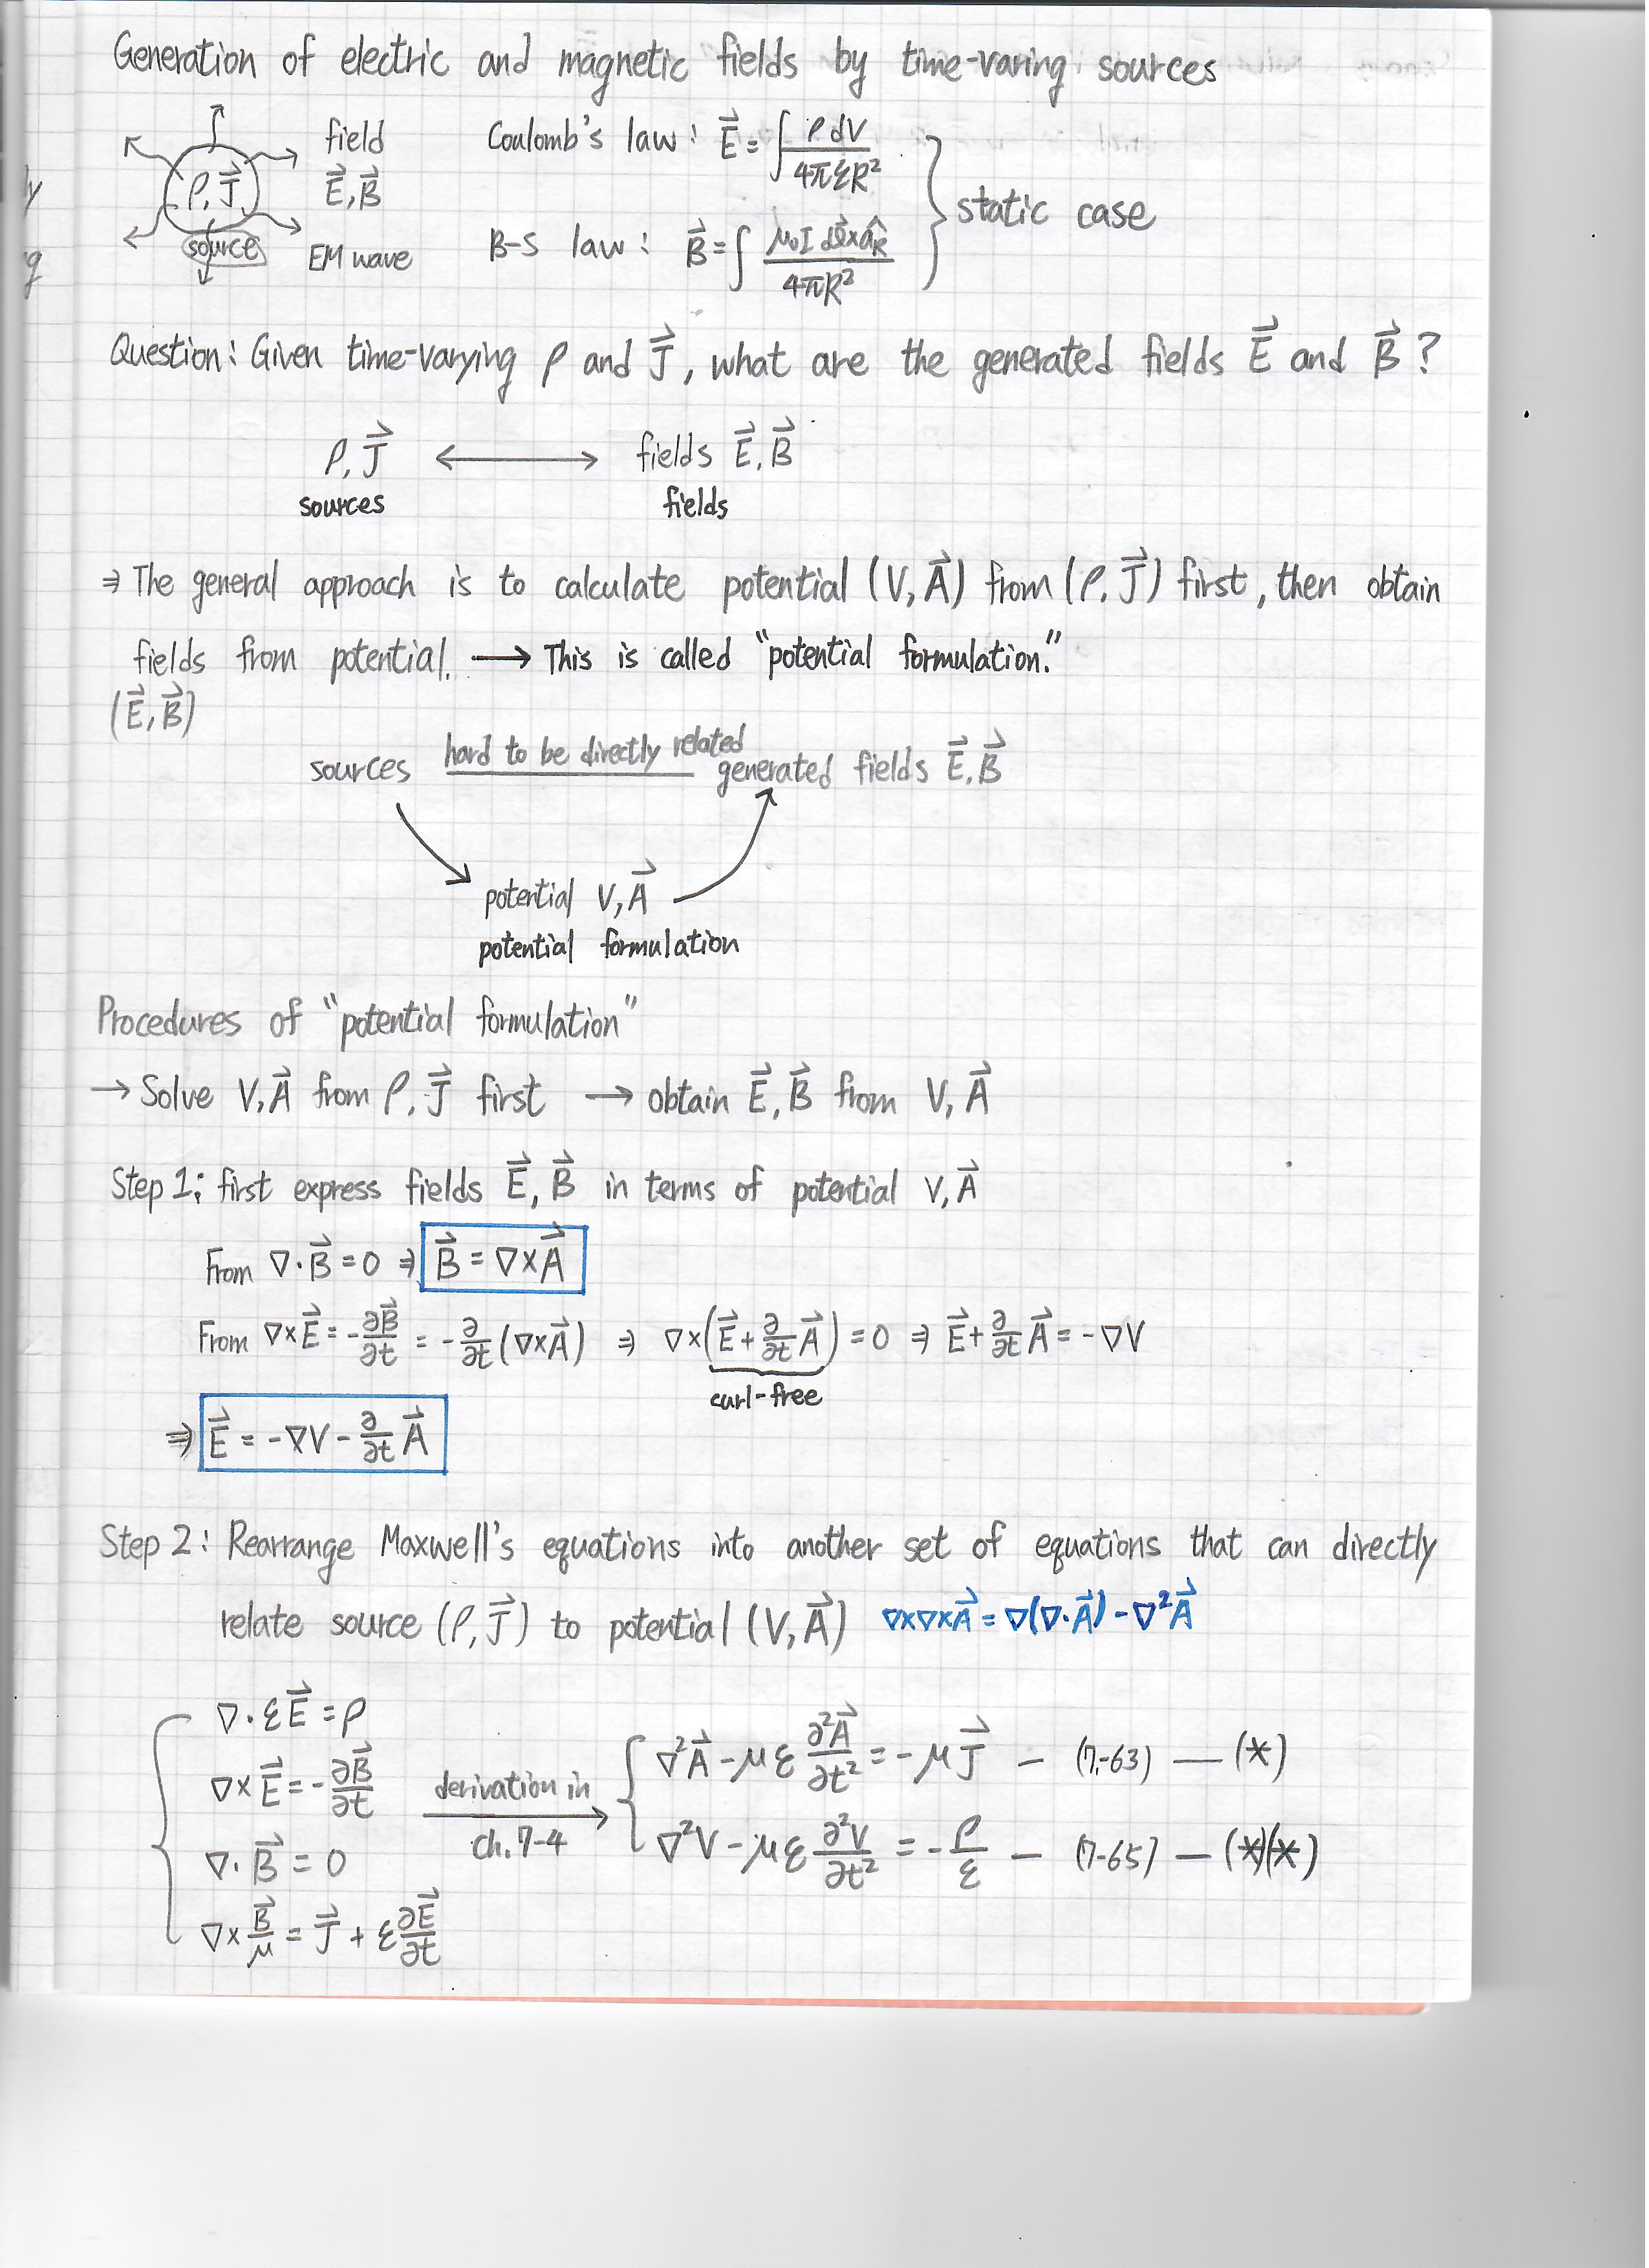 Generation of electric and magnetic fields by time-varing sources
ρ, J⃗
source
field
E⃗, B⃗
EM wave
Coulomb's law : E⃗ = ∫ ρ dV / 4πεR²
B-S law : B⃗ = ∫ μ₀I dl⃗ × â_R / 4πR²
static case
Question : Given time-varying ρ and J⃗, what are the generated fields E⃗ and B⃗ ?
ρ, J⃗ ⟷ fields E⃗, B⃗
sources fields
⇒ The general approach is to calculate potential (V, A⃗) from (ρ, J⃗) first, then obtain
fields from potential. → This is called "potential formulation."
(E⃗, B⃗)
sources hard to be directly related generated fields E⃗, B⃗
potential V, A⃗
potential formulation
Procedures of "potential formulation"
→ Solve V, A⃗ from ρ, J⃗ first → obtain E⃗, B⃗ from V, A⃗
Step 1: first express fields E⃗, B⃗ in terms of potential V, A⃗
From ∇·B⃗ = 0 ⇒ B⃗ = ∇×A⃗
From ∇×E⃗ = -∂B⃗/∂t = -∂/∂t (∇×A⃗) ⇒ ∇×(E⃗ + ∂/∂t A⃗) = 0 ⇒ E⃗ + ∂/∂t A⃗ = -∇V
curl-free
⇒ E⃗ = -∇V - ∂/∂t A⃗
Step 2: Rearrange Maxwell's equations into another set of equations that can directly
relate source (ρ, J⃗) to potential (V, A⃗) ∇×∇×A⃗ = ∇(∇·A⃗) - ∇²A⃗
∇·εE⃗ = ρ
∇×E⃗ = -∂B⃗/∂t
∇·B⃗ = 0
∇×B⃗/μ = J⃗ + ε ∂E⃗/∂t
derivation in
ch. 7-4
∇²A⃗ - με ∂²A⃗/∂t² = -μJ⃗ — (7-63) — (*)
∇²V - με ∂²V/∂t² = -ρ/ε — (7-65) — (*)(*)